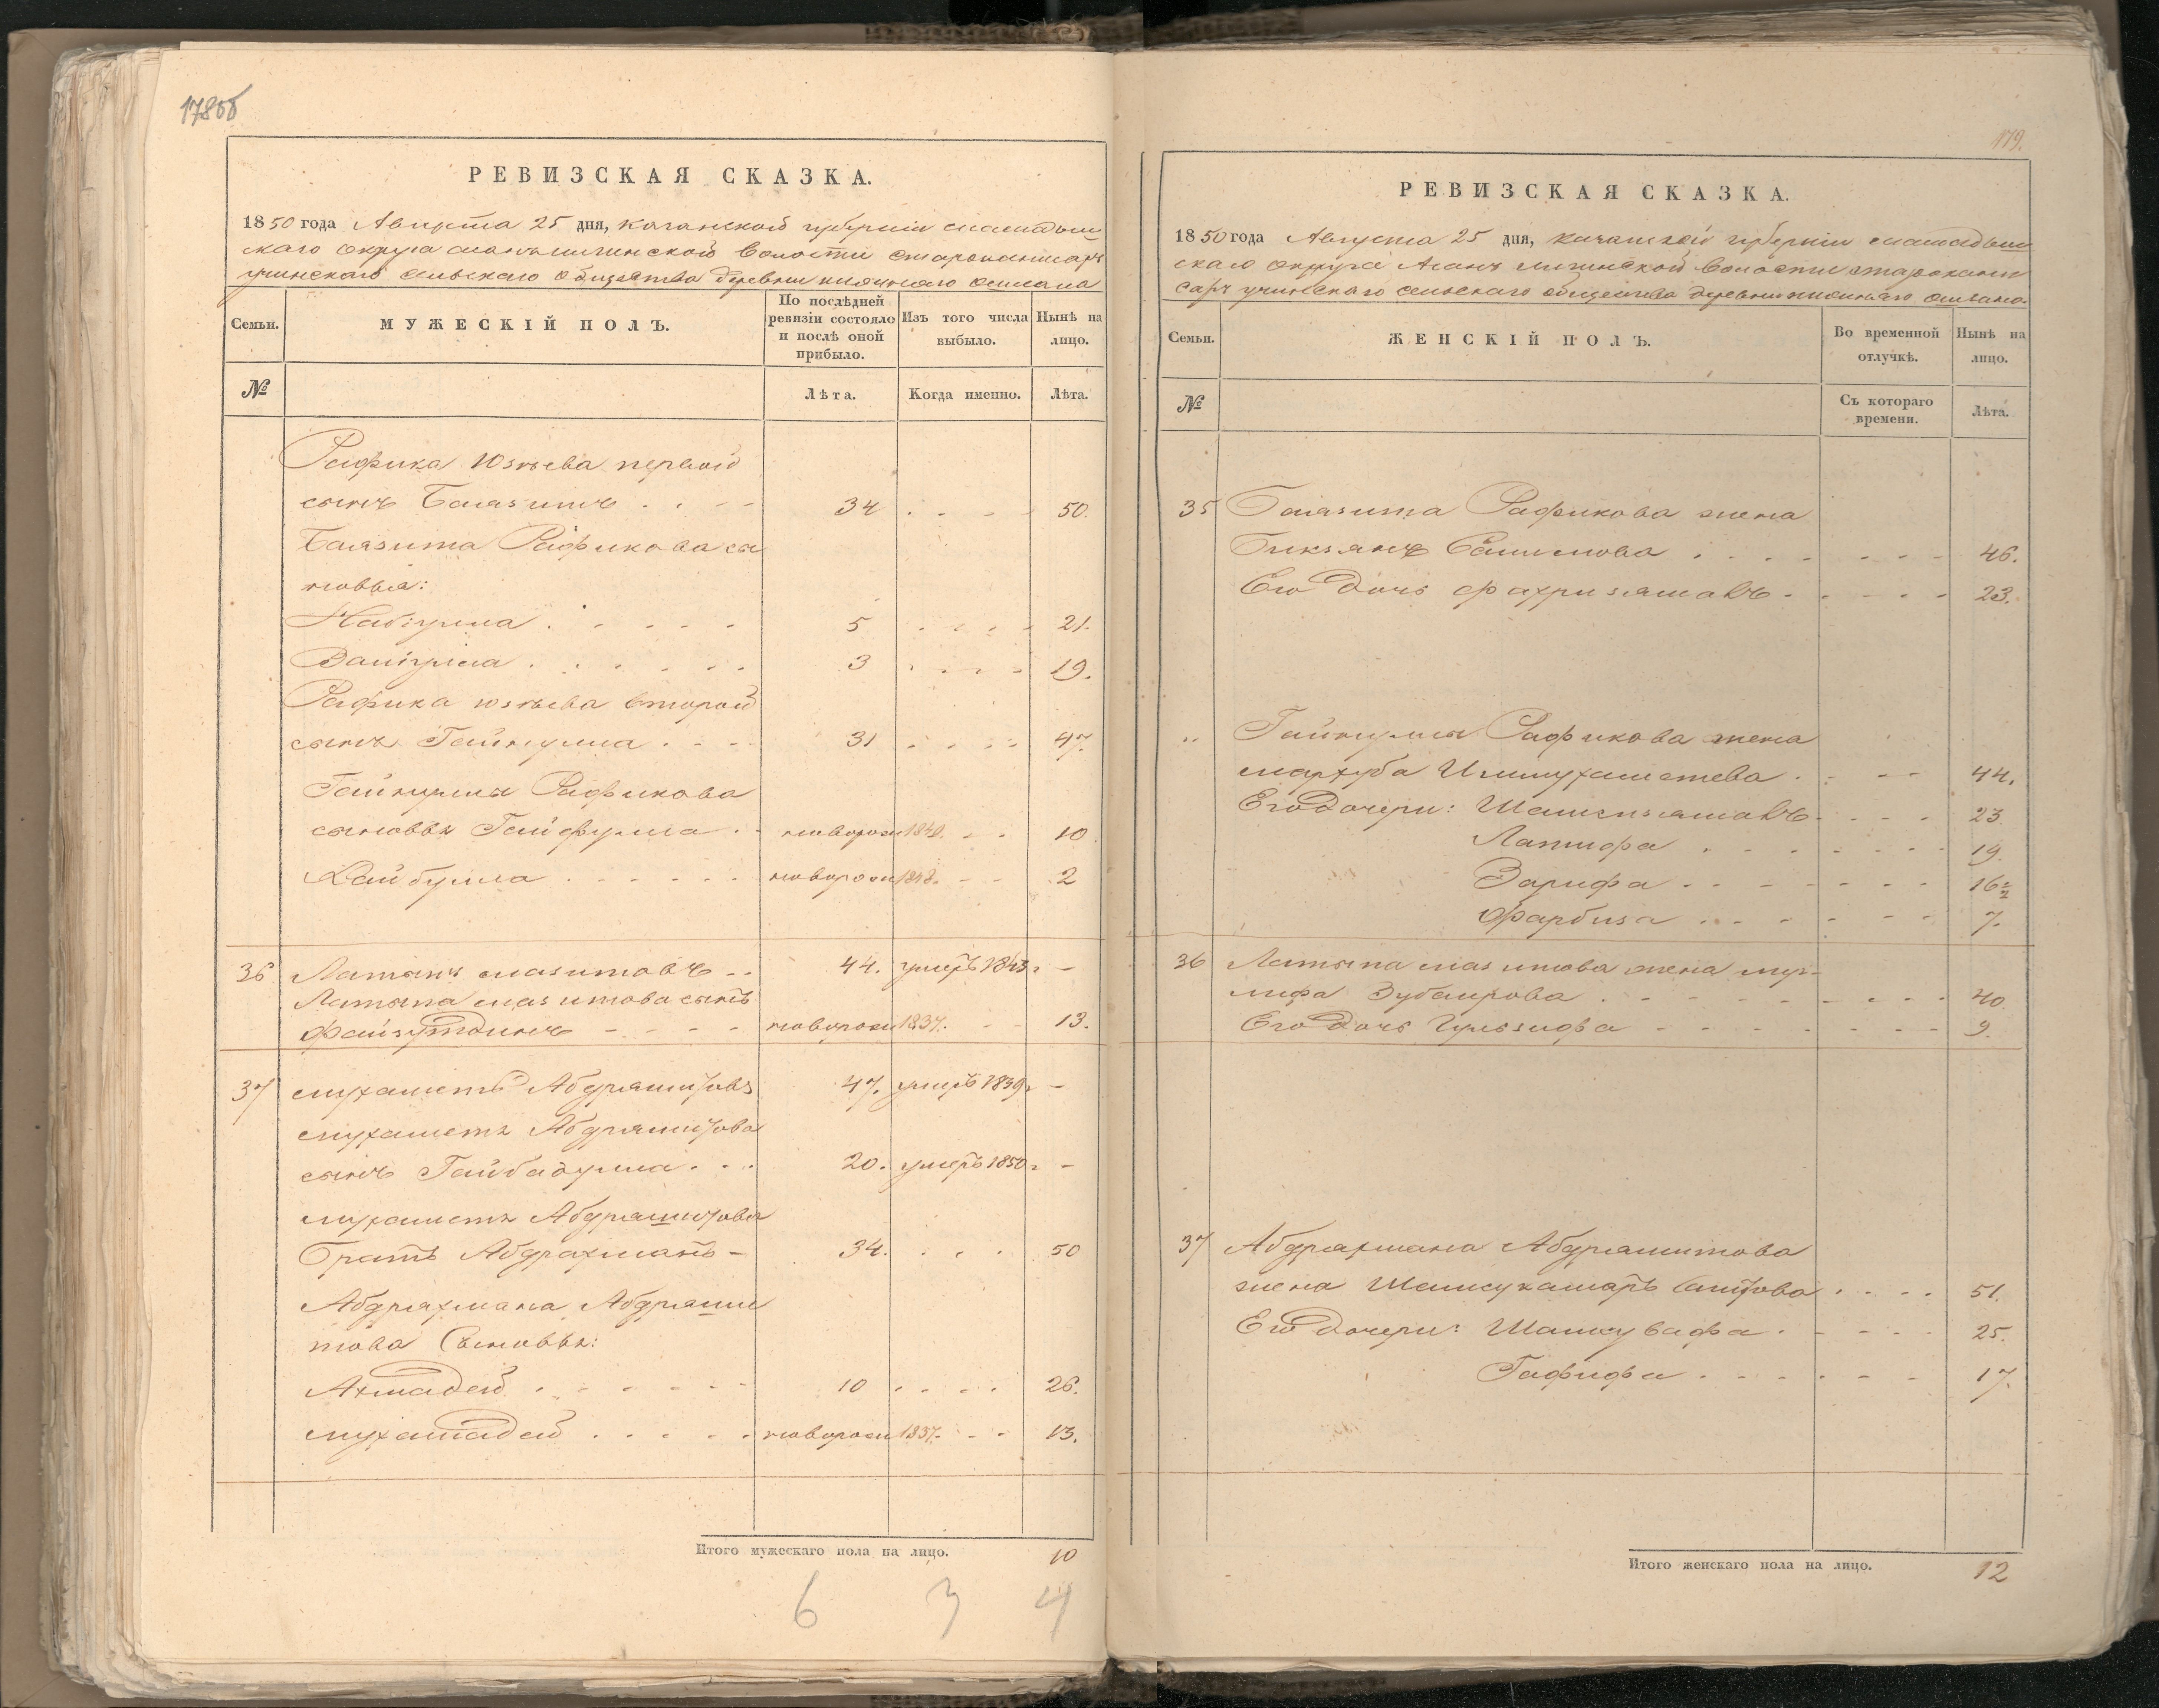 178об
РЕВИЗСКАЯ СКАЗКА.
1850 года Августа 25 дня, казанской губернiи мамадыш
скаго округа волости
сельскаго общества деревни нижняго
Семьи.
МУЖЕСКІЙ ПОЛЪ.
По послѣдней ревизіи состояло и послѣ оной прибыло.
Изъ того числа выбыло.
Нынѣ на лицо.
№
Лѣта.
Когда именно.
Лѣта.
Рафика Юзѣева первой
сынъ Баязитъ 34 50.
Баязита Рафикова сы
новья:
Набіулла 5 21.
Валіулла 3 19.
Рафика Юзѣева второй
сынъ Гайнулла 31 47.
Гайнуллы Рафикова
сыновья Гайфулла новорож 1840. 10
Хайбулла новорож 1848. 2
36 Латыпъ мазитовъ 44. умеръ 1843 -
Латыпа мазитова сынъ
Файзутдинъ новорож 1837. 13.
37 мухаметъ Абдрашитовъ 47. умеръ 1839 -
мухаметя Абдрашитова
сынъ Гайбадулла 20. умеръ 1850 -
мухаметя Абдрашитова
братъ Абдрахманъ 34. 50
Абдрахмана Абдраши
това Сыновья:
Ахмадей 10 26.
мухамадей новорож 1837. 13.
Итого мужескаго пола на лицо. 10
6 3 4
179.
РЕВИЗСКАЯ СКАЗКА.
1850 года Августа 25 дня, казанской губернiи мамадыш
скаго округа волости
сельскаго общества деревни нижняго
Семьи.
ЖЕНСКІЙ ПОЛЪ.
Во временной отлучкѣ.
Нынѣ на лицо.
№
Съ котораго времени.
Лѣта.
35 Баязита Рафикова жена
Бикзянъ Салимова 46.
Его Дочь Фахризямалъ 23.
„ Гайнуллы Рафикова жена
мархуба Ишмухаметева 44.
Его Дочери: Шамсизямалъ 23.
Латифа 19.
Зарифа 16½
Фарбиза 7.
36 Латыпа мазитова жена муг-
лифа Зубаирова 40.
Его Дочь Гульзифа 9.
37 Абдрахмана Абдрашитова
жена Шамсукамаръ Саитова 51.
Его Дочери: Шамсувафа 25.
Гафифа 17.
Итого женскаго пола на лицо. 12